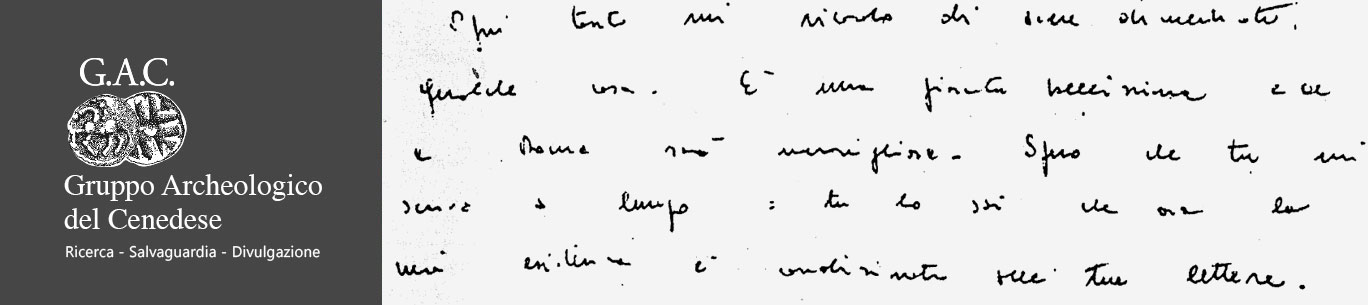 G.A.C.
Gruppo Archeologico
del Cenedese
Ricerca - Salvaguardia - Divulgazione
tanto mi ricordo di avere dimenticato
qualche cosa. È una giornata bellissima e
a Roma sarà meravigliosa. Spero che tu mi
scriva a lungo : tu lo sai che ora la
mia esistenza è condizionata alle tue lettere.